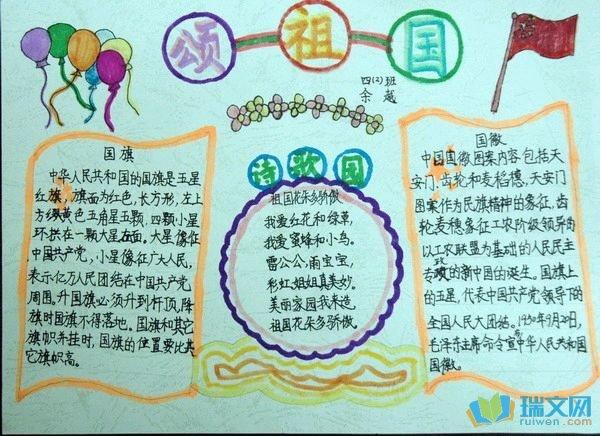 颂祖国
四(2)班
余越
国旗
中华人民共和国的国旗是五星
红旗，旗面为红色，长方形，左上
方缀黄色五角星五颗，四颗小星
环拱在一颗大星右面。大星像征
中国共产党，小星像征广大人民，
表示亿万人民团结在中国共产党
周围。升国旗必须升到杆顶，降
旗时国旗不得落地。国旗和其它
旗帜并挂时，国旗的位置要比其
它旗帜高。
诗歌园
祖国花朵多骄傲
我爱红花和绿草，
我爱蜜蜂和小鸟。
雷公公，雨宝宝，
彩虹姐姐真美妙。
美丽家园我来造
祖国花朵多骄傲。
国徽
中国国徽图案内容包括天
安门、齿轮和麦稻穗，天安门
图案作为民族精神的象征，齿
轮麦穗象征工农阶级领导的
以工农联盟为基础的人民民主
专政的新中国的诞生。国旗上
的五星，代表中国共产党领导下的
全国人民大团结。1950年9月20日，
毛泽东主席命令宣布中华人民共和国
国徽。
瑞文网
ruiwen.com